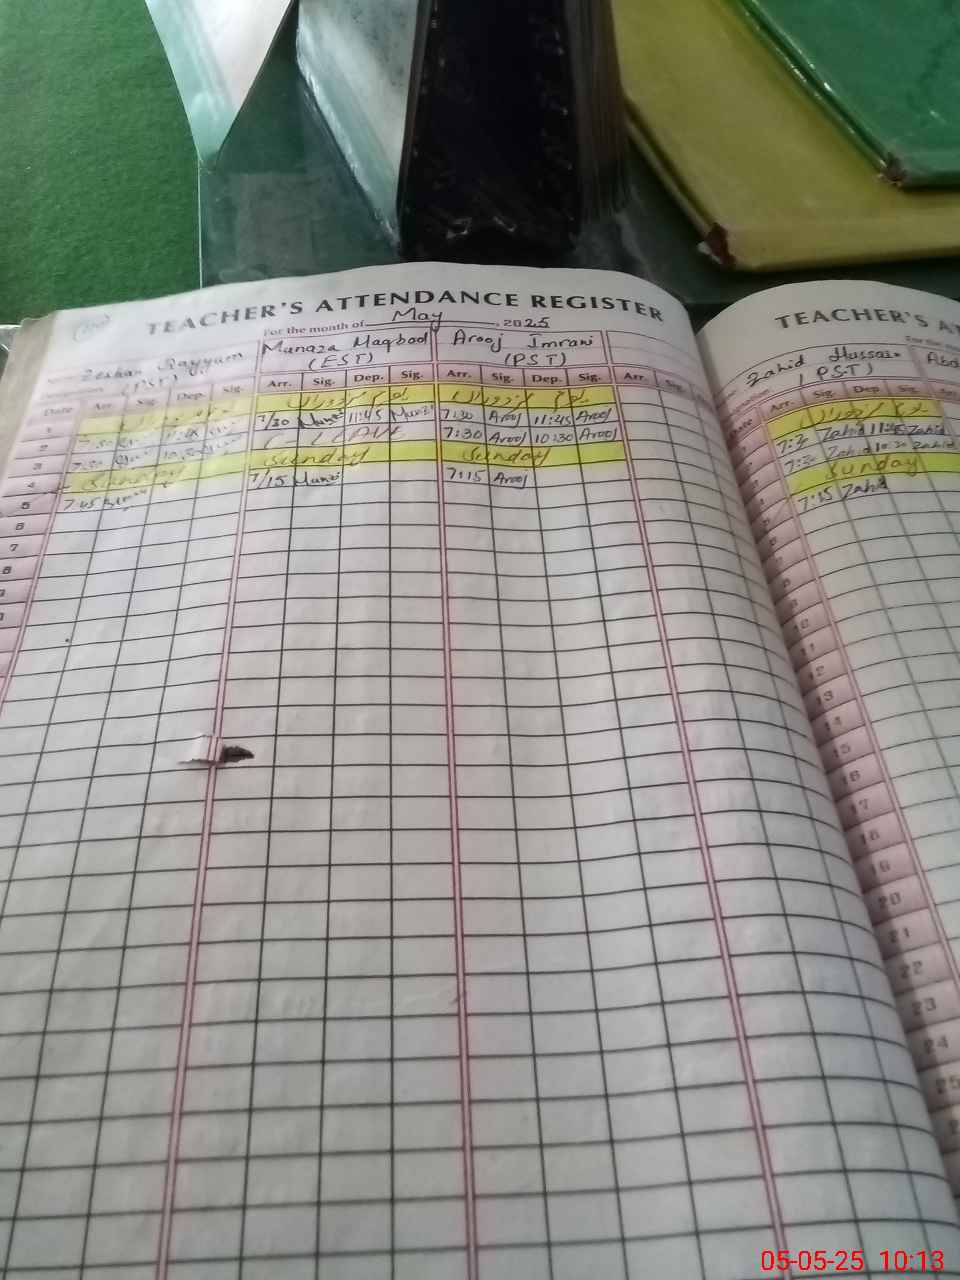 TEACHER'S ATTENDANCE REGISTER
For the month of May, 2025
Zeshan Qayyum Manaza Maqbool Arooj Imran
(PST) (EST) (PST)
Date Arr. Sig. Dep. Sig. Arr. Sig. Dep. Sig. Arr. Sig. Dep. Sig. Arr. Sig.
1 یوم مزدوراں یوم مزدوراں
2 7:30 11:45 7/30 11:45 7:30 Arooj 11:45 Arooj
3 7:30 10:30 C-LEAVE 7:30 Arooj 10:30 Arooj
4 Sunday Sunday Sunday
5 7:45 7/15 7:15 Arooj
6
7
8
9
TEACHER'S
For the
Zahid Hussain
(PST)
Arr. Sig. Dep. Sig.
یوم مزدوراں
Zahid 11:45 Zahid
Zahid 10:30 Zahid
Sunday
7:15 Zahid
10
11
12
13
14
15
16
17
18
19
20
21
22
23
24
25
05-05-25 10:13